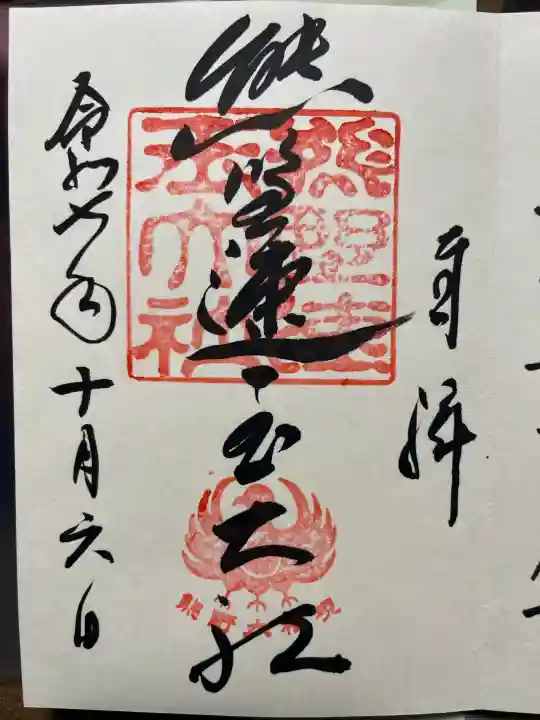 奉拝
熊野速玉大社
熊野速玉大社
熊野大権現
令和七年十月六日